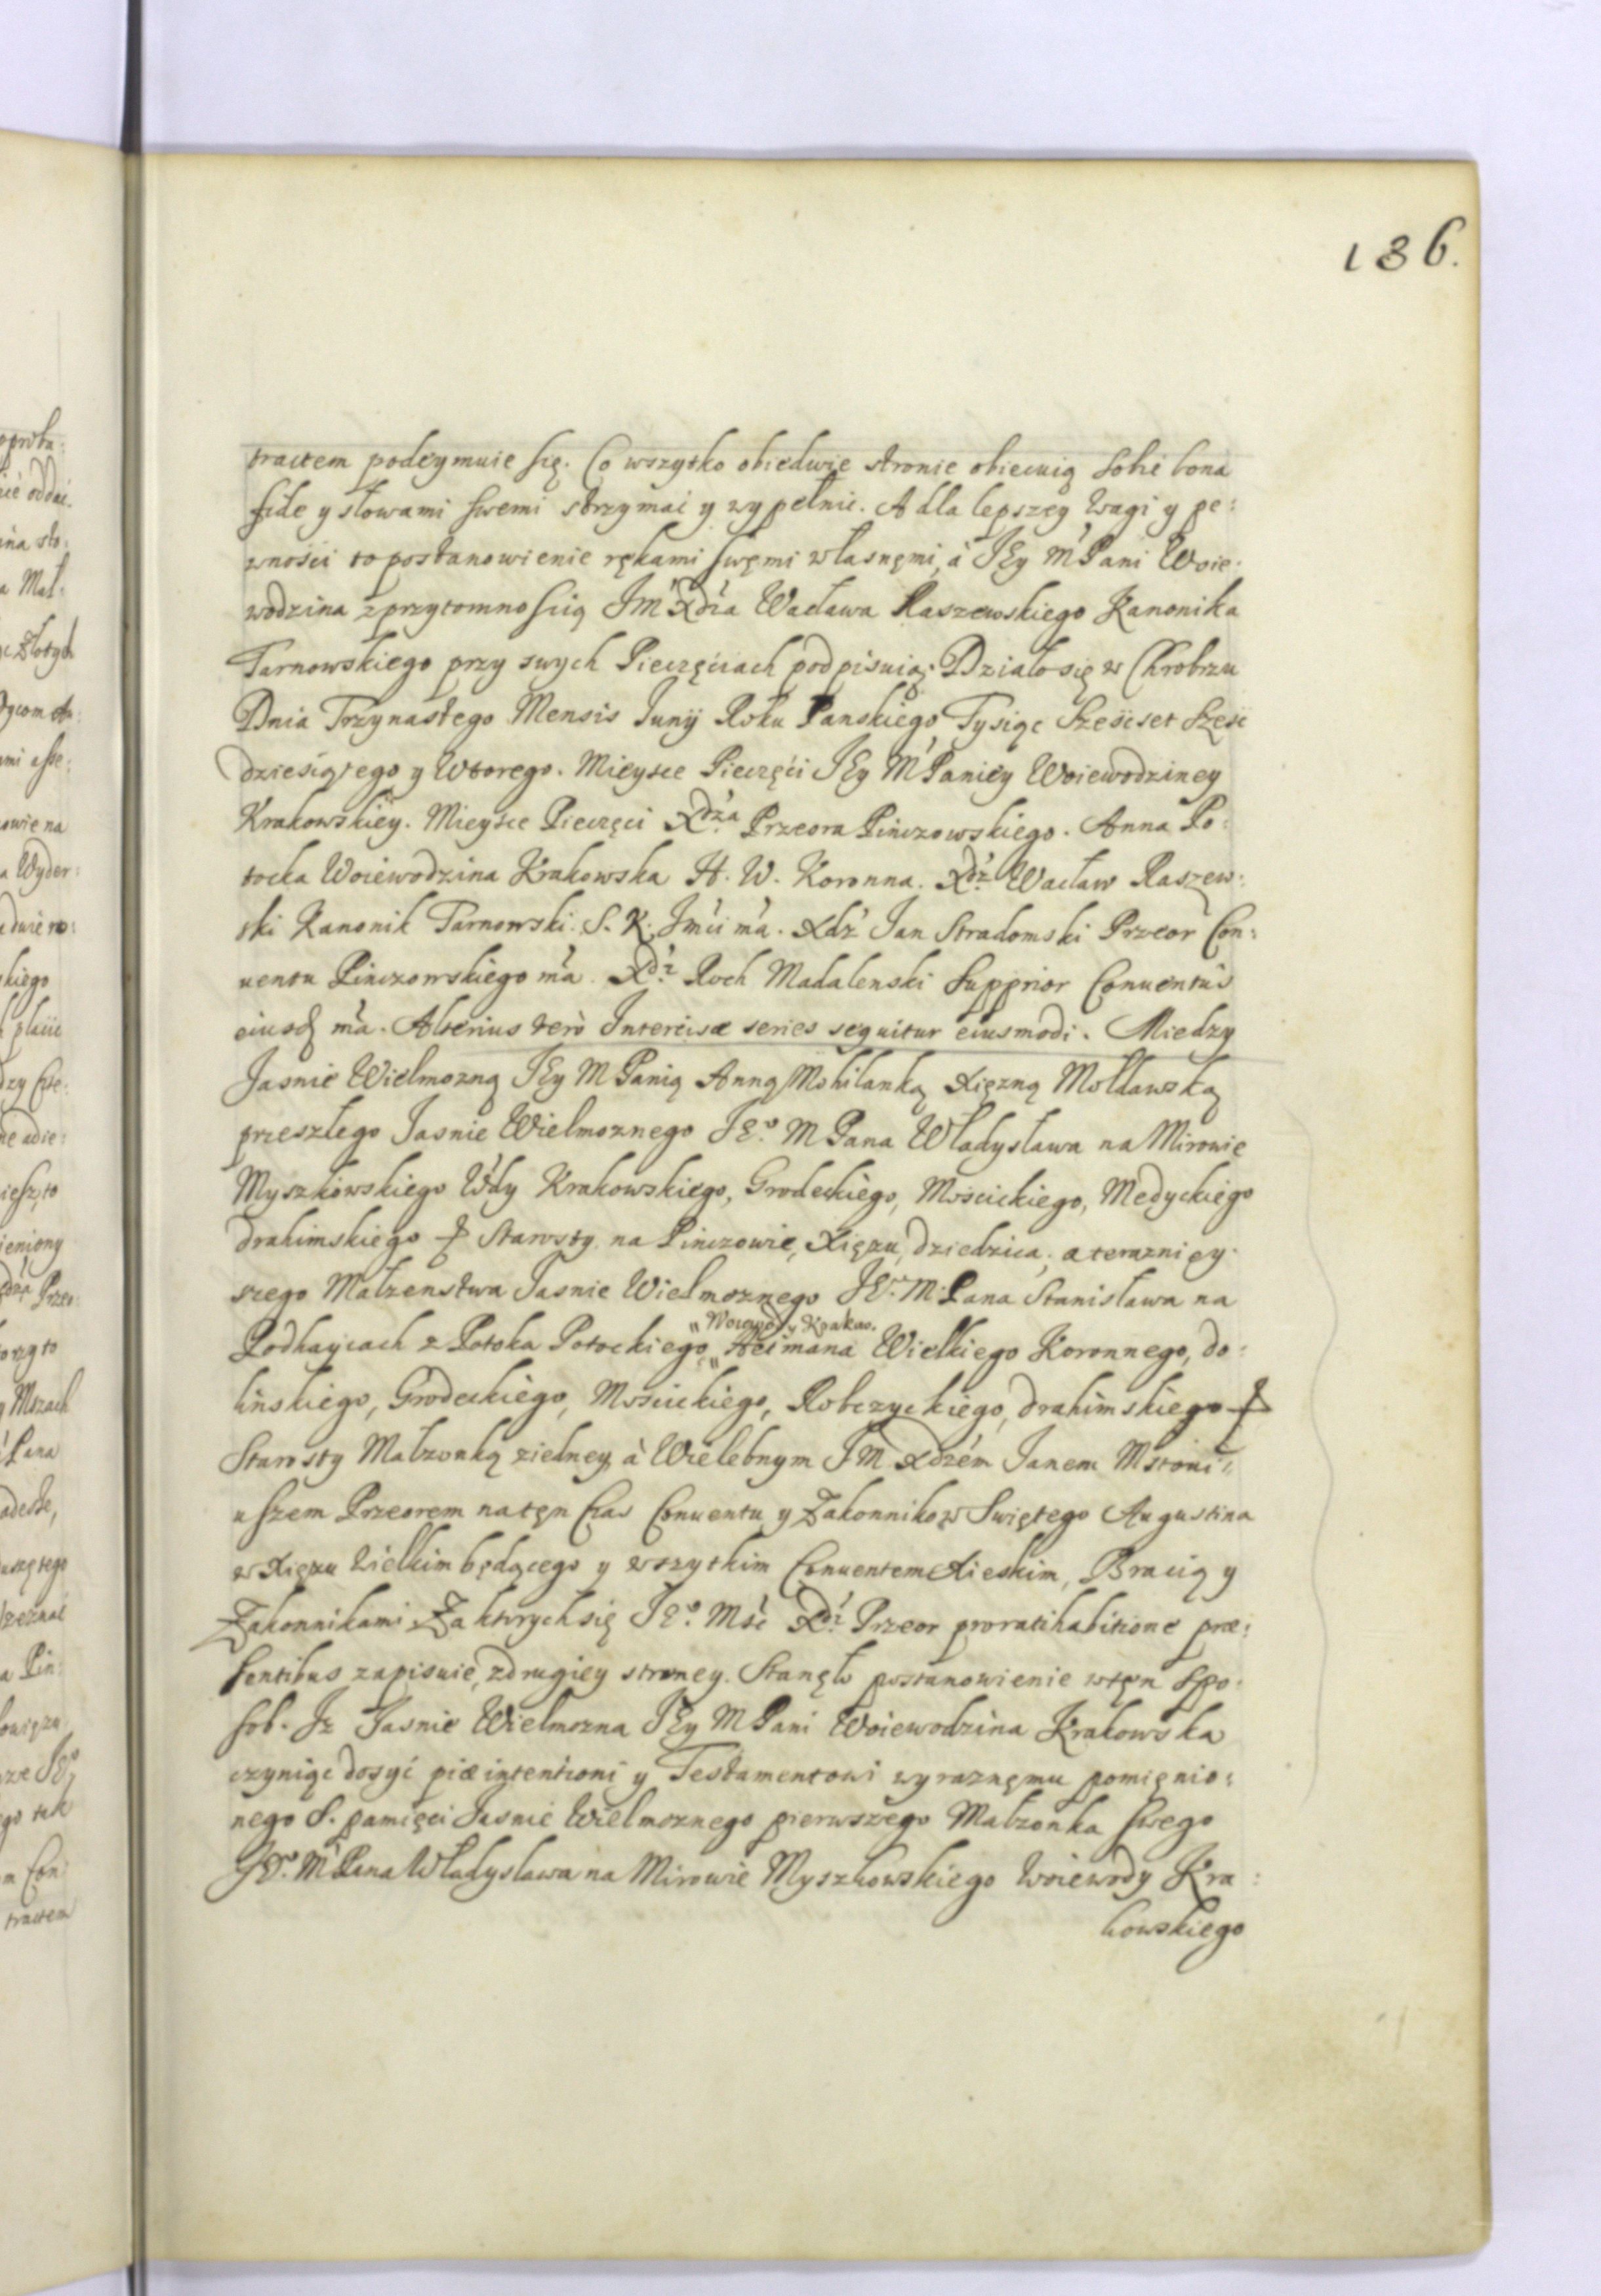 136.
tractem podeymuie się. Co wszytko obiedwie stronie obiecuią sobie bona
fide y słowami swemi strzymać y wypełnić. A dla lepszey wagi y pe:
wnosci to postanowienie rękami swęmi własnęmi, à JEy M Pani Woie:
wodzina z przytomnoscią JM Xdza Wacława Raszewskiego Kanonika
Tarnowskiego przy swych Pieczęciach podpisuią. Działo się w Chrobrzu
Dnia Trzynastego Mensis Junij Roku Panskiego Tysiąc Szescset Szesc
dziesiątego y Wtorego. Mieysce Pieczęci JEy M Paniey Woiewodziney
Krakowskiey. Mieysce Pieczęci Xdza Przeora Pinczowskiego. Anna Po:
tocka Woiewodzina Krakowska H. W. Koronna. Xdz Wacław Raszew:
ski Kanonik Tarnowski. S. K. Jmci mà. Xdz Jan Stradomski Przeor Con:
uentu Pinczowskiego mà. Xdz Roch Madalenski Supprior Conuentus
eiusd mà. Alterius verò Intercisæ series sequitur eiusmodi. Miedzy
Jasnie Wielmozną JEy M Panią Anną Mohilanką Xięzną Mołdawską
przeszłego Jasnie Wielmoznego JEo M Pana Władysława na Mirowie
Myszkowskiego Wdy Krakowskiego, Grodeckiego, Mościckiego, Medyckiego
drahimskiego & Starosty na Pinczowie, Xięzu, dziedzica, a teraznięy:
szego Małzenstwa Jasnie Wielmoznego JEo M Pana Stanisława na
"Woiewody Krakow.
Podhaycach z Potoka Potockiego, "Hetmana Wielkiego Koronnego, do:
linskiego, Grodeckiego, Mościckiego, Robczyckiego, drahimskiego &
Starosty Małzonką ziedney à Wielebnym JM Xdzem Janem Mstoni"
uszem Przeorem natęn Czas Conuentu y Zakonnikow Swiętego Augustina
w Xięzu Wielkim będącego y wszytkim Conuentem Xieskim, Bracią y
Zakonnikami Za ktorych się JEo Msc Xdz Przeor pro ratihabitione præ:
sentibus zapisuie, z drugiey stroney. Stanęło postanowienie w tęn spo:
sob. Jz Jasnie Wielmozna JEy M Pani Woiewodzina Krakowska
czyniąc dosyć piæ intentioni y Testamentowi wyraznęmu pomięnio:
nego S. pamięci Jasnie Wielmoznego pierwszego Małzonka swego
JEo M Pana Władysława na Mirowie Myszkowskiego Woiewody Kra:
kowskiego